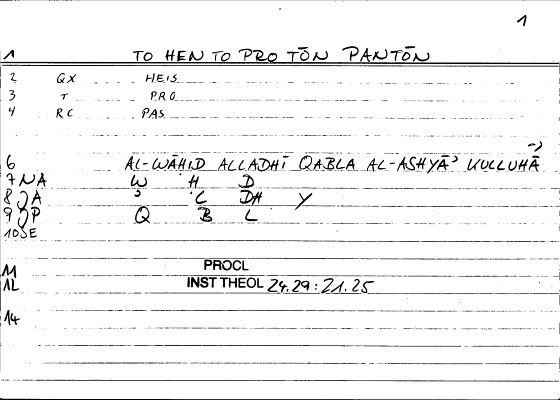 1
1 TO HEN TO PRO TŌN PANTŌN
2 QX HEIS
3 T PRO
4 RC PAS
6 AL-WĀḤID ALLADHĪ QABLA AL-ASHYĀʾ KULLUHĀ
7 NA W Ḥ D
8 JA ʾ L DH Y
9 JP Q B L
10 SE
11 PROCL
12 INST THEOL 24.29 : 21.25
14